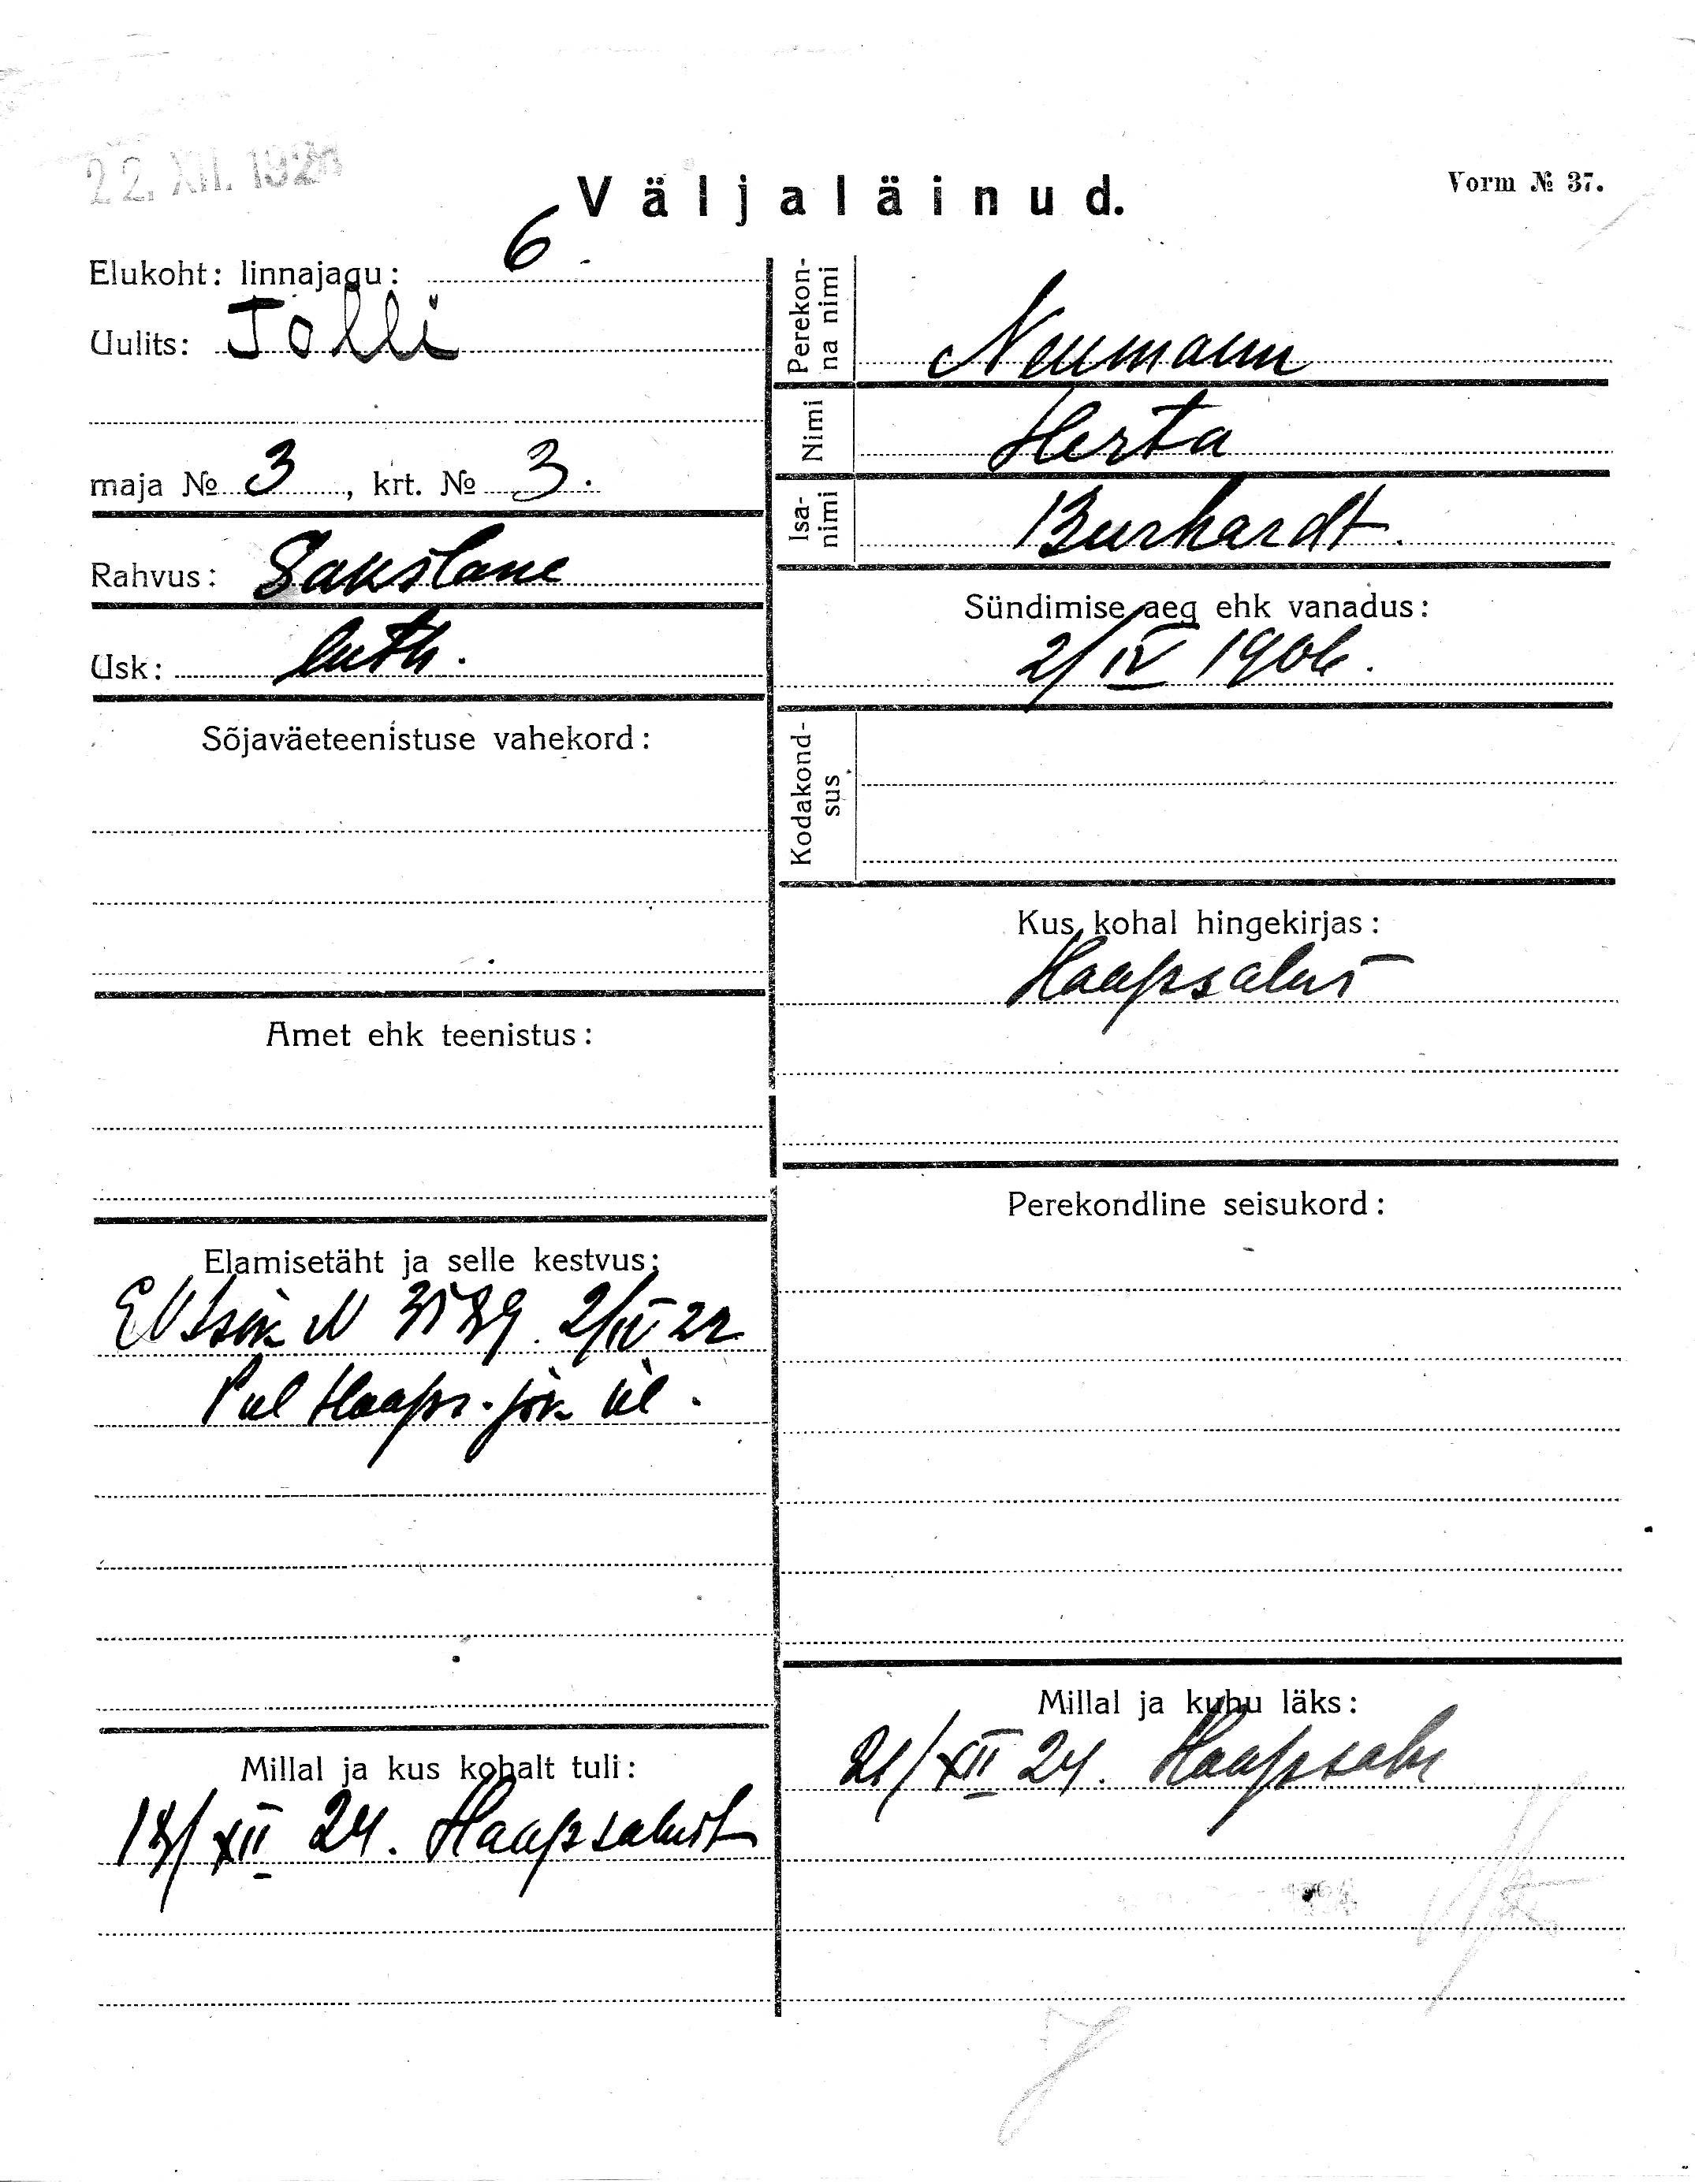 22. XII. 192
Väljaläinud.
Vorm № 37.
Elukoht: linnajagu: 6
Uulits: Tolli
maja № 3, krt. № 3.
Rahvus: Sakslane
Usk: luth.
Sõjaväeteenistuse vahekord:
Amet ehk teenistus:
Elamisetäht ja selle kestvus:
2/IV 22
Haaps. ül.
Millal ja kus kohalt tuli:
18/XII 24. Haapsalust
Perekonna nimi
Neumann
Nimi
Herta
Isanimi
Burhardt.
Sündimise aeg ehk vanadus:
2/IV 1906.
Kodakondsus
Kus kohal hingekirjas:
Haapsalus
Perekondline seisukord:
Millal ja kuhu läks:
21/XII 24. Haapsalu